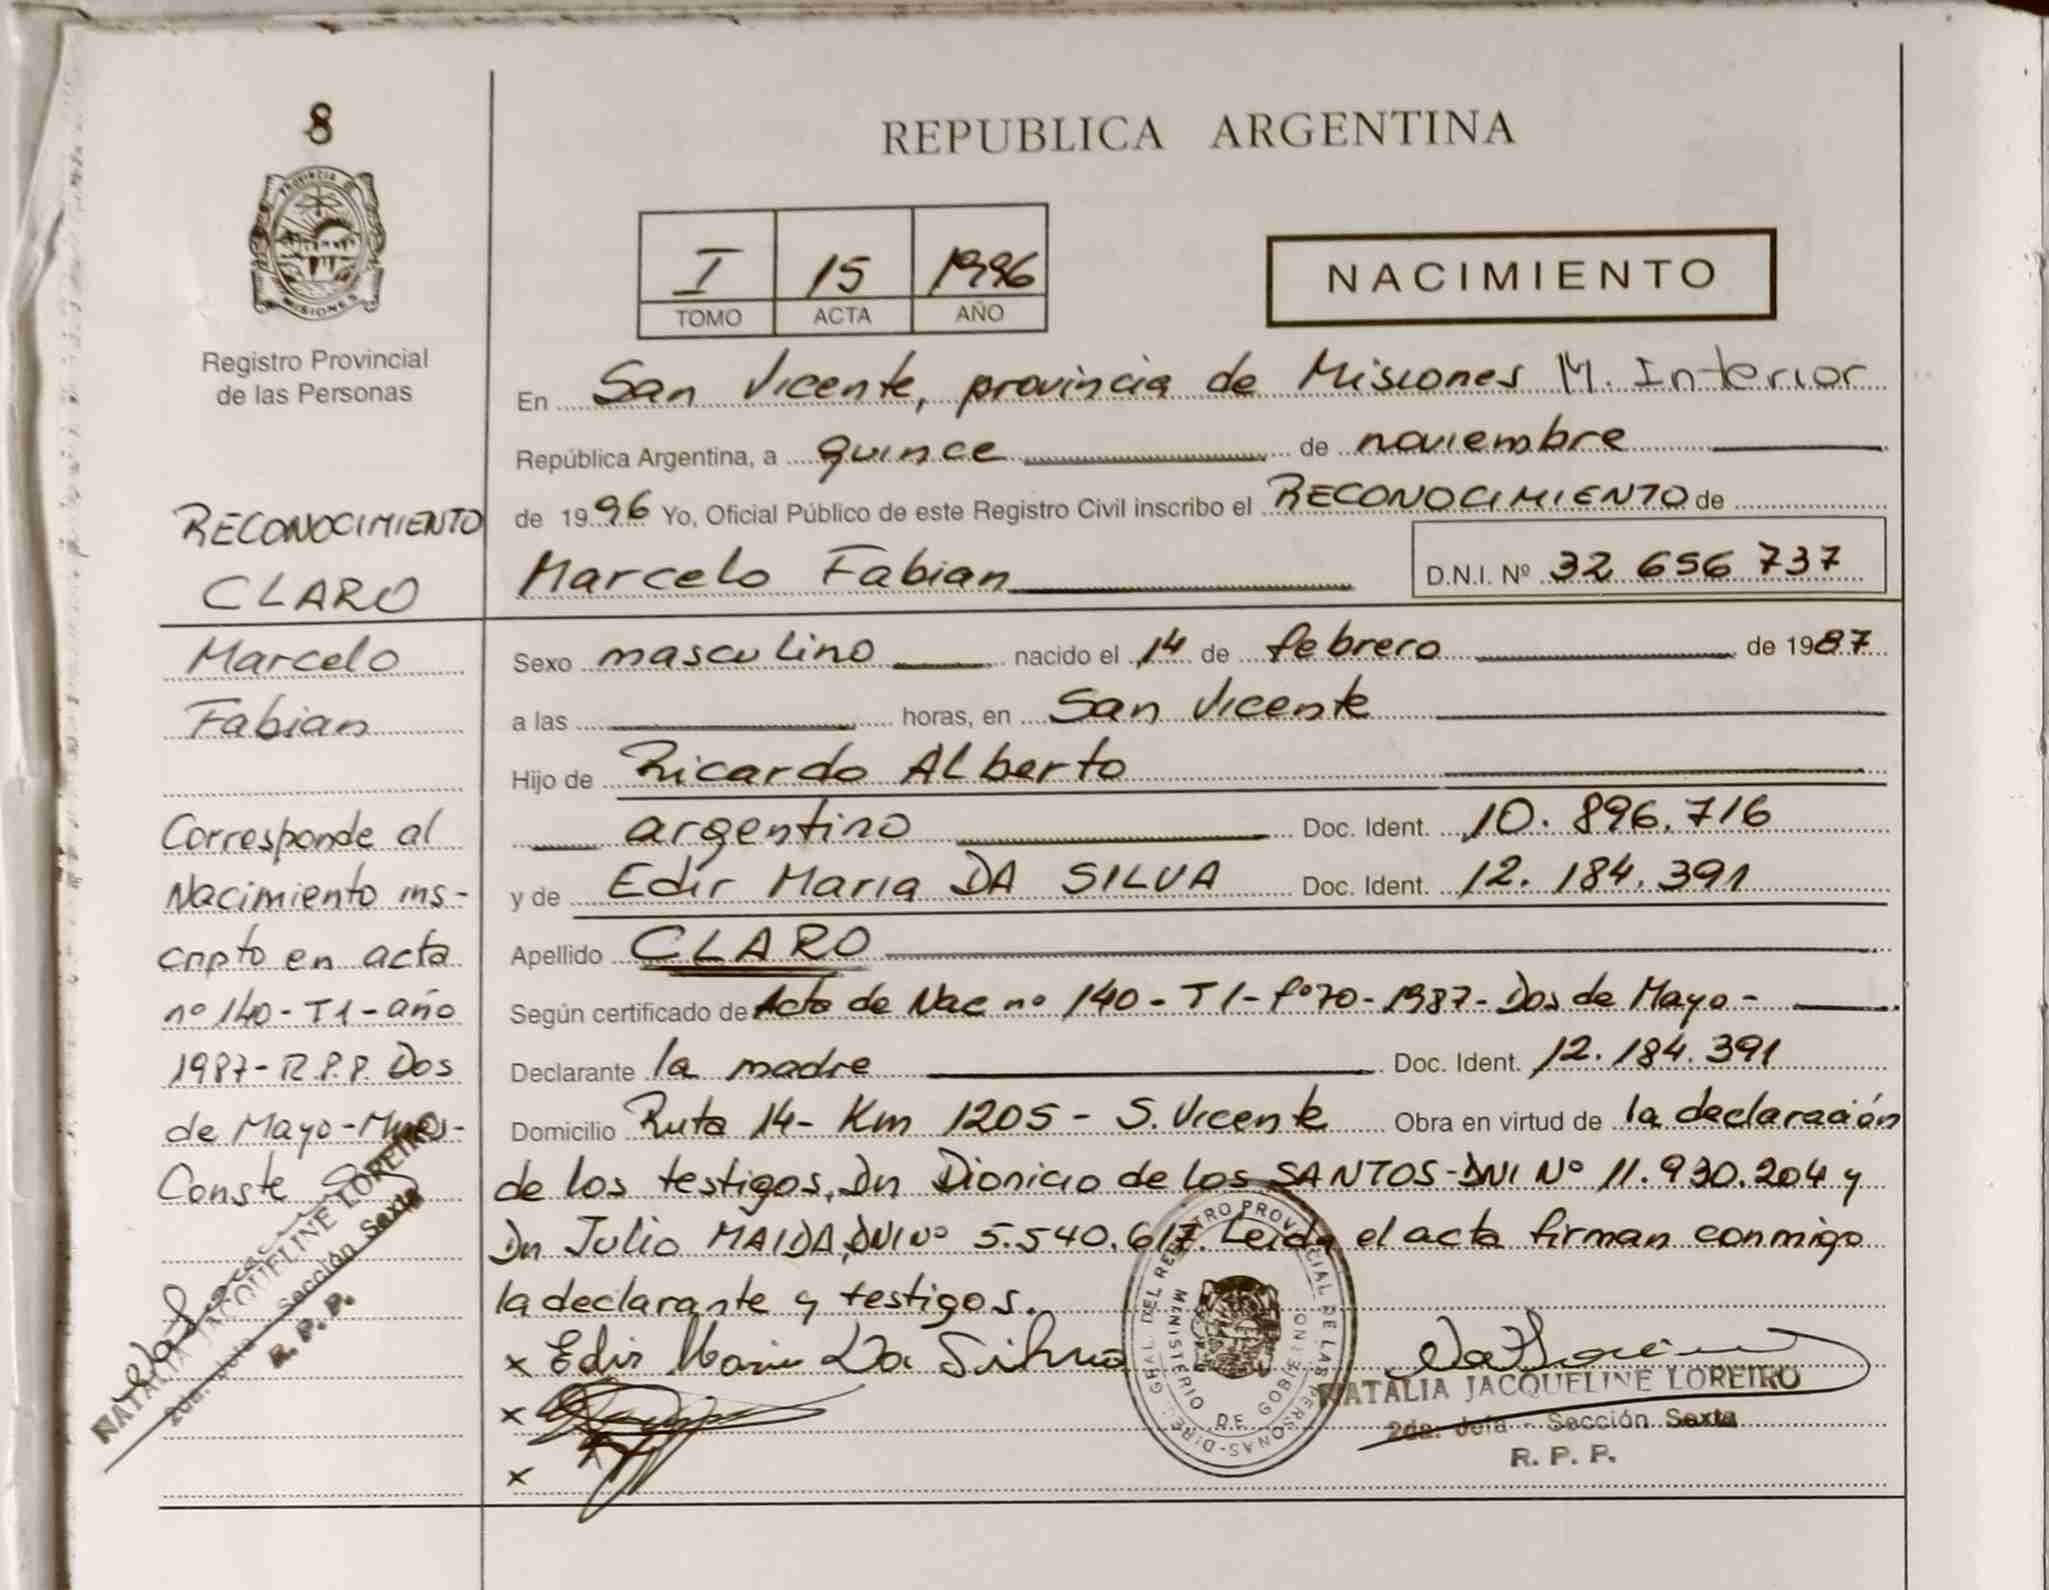 8
PROVINCIA DE
MISIONES
Registro Provincial
de las Personas
RECONOCIMIENTO
CLARO
Marcelo
Fabian
Corresponde al
Nacimiento ins-
cripto en acta
nº 140 - T1 - año
1987 - R.P.P. Dos
de Mayo - Mnes -
Conste
NATALIA JACQUELINE LOREIRO
2da. Jefa - Sección Sexta
R. P. P.
REPUBLICA ARGENTINA
I 15 1996
TOMO ACTA AÑO
NACIMIENTO
En San Vicente, provincia de Misiones M. Interior
República Argentina, a quince de noviembre
de 1996 Yo, Oficial Público de este Registro Civil inscribo el RECONOCIMIENTO de
Marcelo Fabian D.N.I. Nº 32 656 737
Sexo masculino nacido el 14 de febrero de 1987
a las horas, en San Vicente
Hijo de Ricardo Alberto
argentino Doc. Ident. 10.896.716
y de Edir Maria DA SILVA Doc. Ident. 12.184.391
Apellido CLARO
Según certificado de Acta de Nac nº 140 - T1 - fº 70 - 1987 - Dos de Mayo -
Declarante la madre Doc. Ident. 12.184.391
Domicilio Ruta 14 - Km 1205 - S. Vicente Obra en virtud de la declaración
de los testigos, Dn Dionicio de los SANTOS - DNI Nº 11.930.204 y
Dn Julio MAIDA, DNI Nº 5.540.617. Leida el acta firman conmigo
la declarante y testigos.
x Edir Maria Da Silva
x
x
DIREC. GRAL. DEL REGISTRO PROVINCIAL DE LAS PERSONAS
MINISTERIO DE GOBIERNO
NATALIA JACQUELINE LOREIRO
2da. Jefa - Sección Sexta
R. P. P.